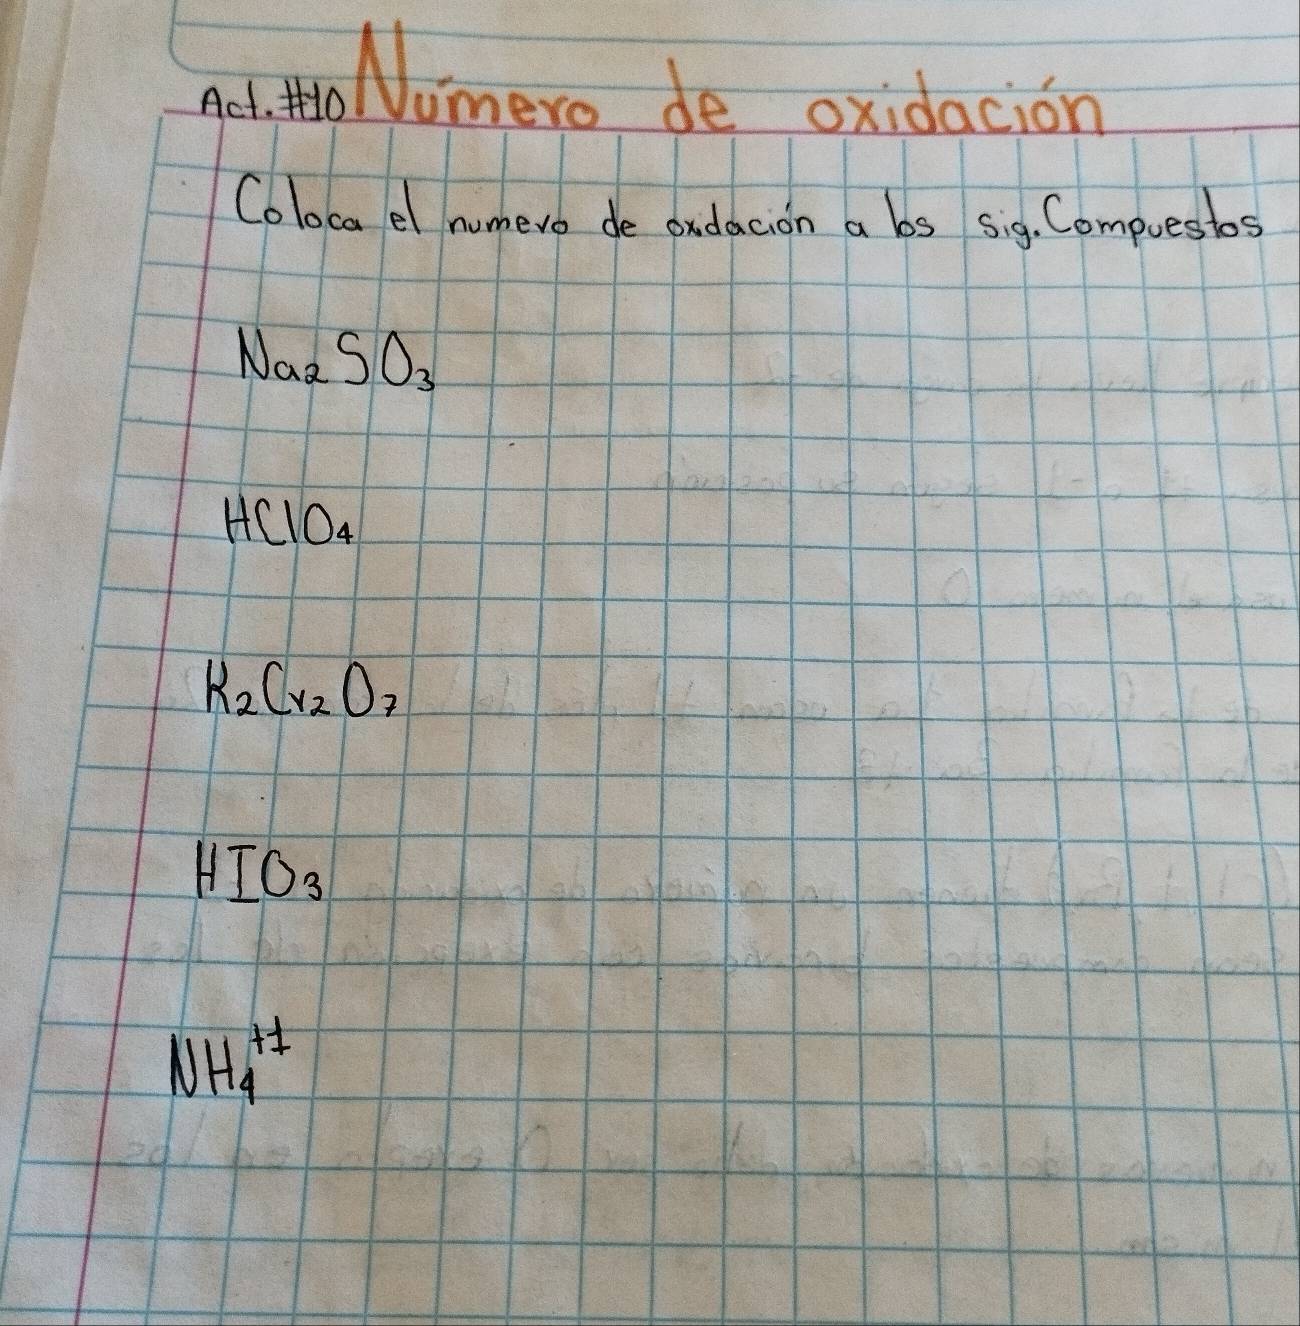 Act. #10 Número de oxidación
Coloca el numero de oxidación a los sig. Compuestos
Na₂SO₃
HClO₄
K₂Cr₂O₇
HIO₃
NH₄⁺¹